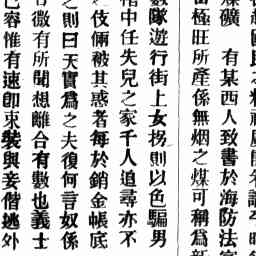 國民之精神
煤礦　有某西人致書於海防法
極旺所產係無烟之煤可稱爲新
數隊遊行街上女拐則以色騙男
中任失兒之家千人追尋亦不
伎倆被其惑者每於銷金帳底
之則曰天實爲之夫復何言奴係
微有所聞想離合有數也義士
已容惟有速卽束裝與妾偕逃外